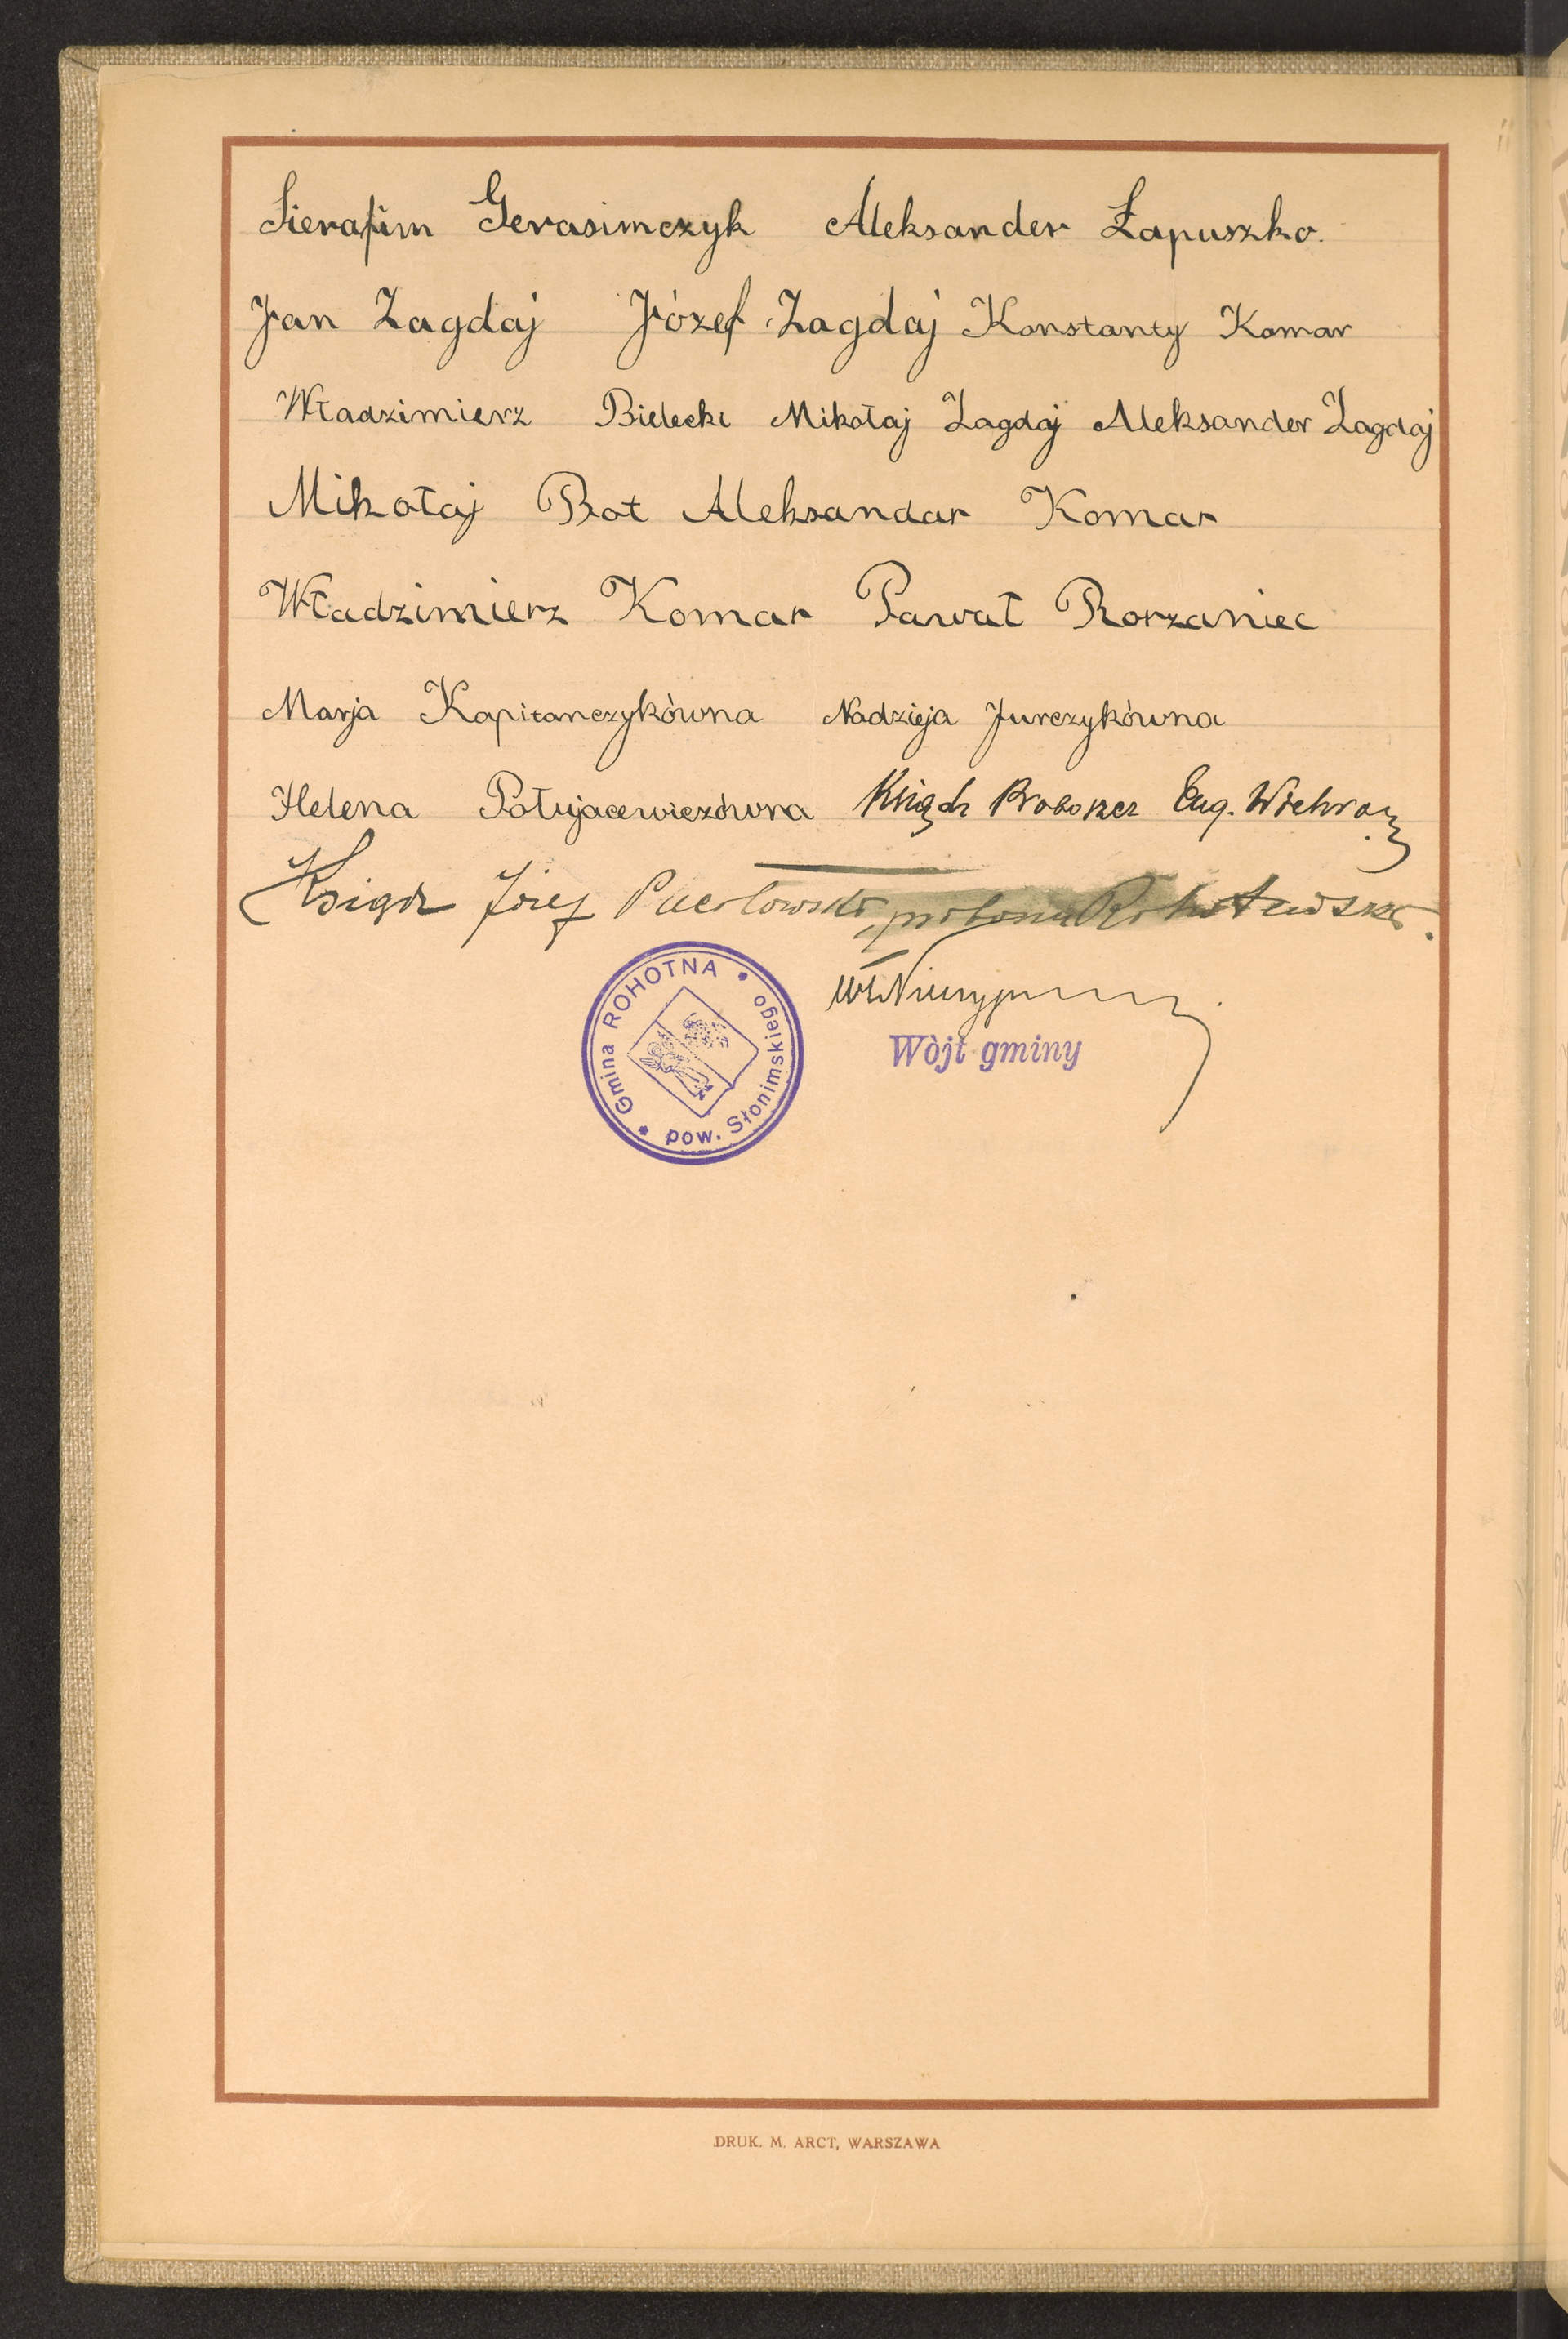 Sierafim Gerasimczyk Aleksander Łapuszko.
Jan Zagdaj Józef Zagdaj Konstanty Komar
Władzimierz Bielecki Mikołaj Zagdaj Aleksander Zagdaj
Mikołaj Bot Aleksandar Komar
Władzimierz Komar Pawał Rorzaniec
Marja Kapitanczykówna Nadzieja Jurczykówna
Helena Połujacewiczówna Ksiądz Proboszcz Eug.
Ksiądz Józef
Gmina ROHOTNA
pow. Słonimskiego
Wòjt gminy
DRUK. M. ARCT, WARSZAWA